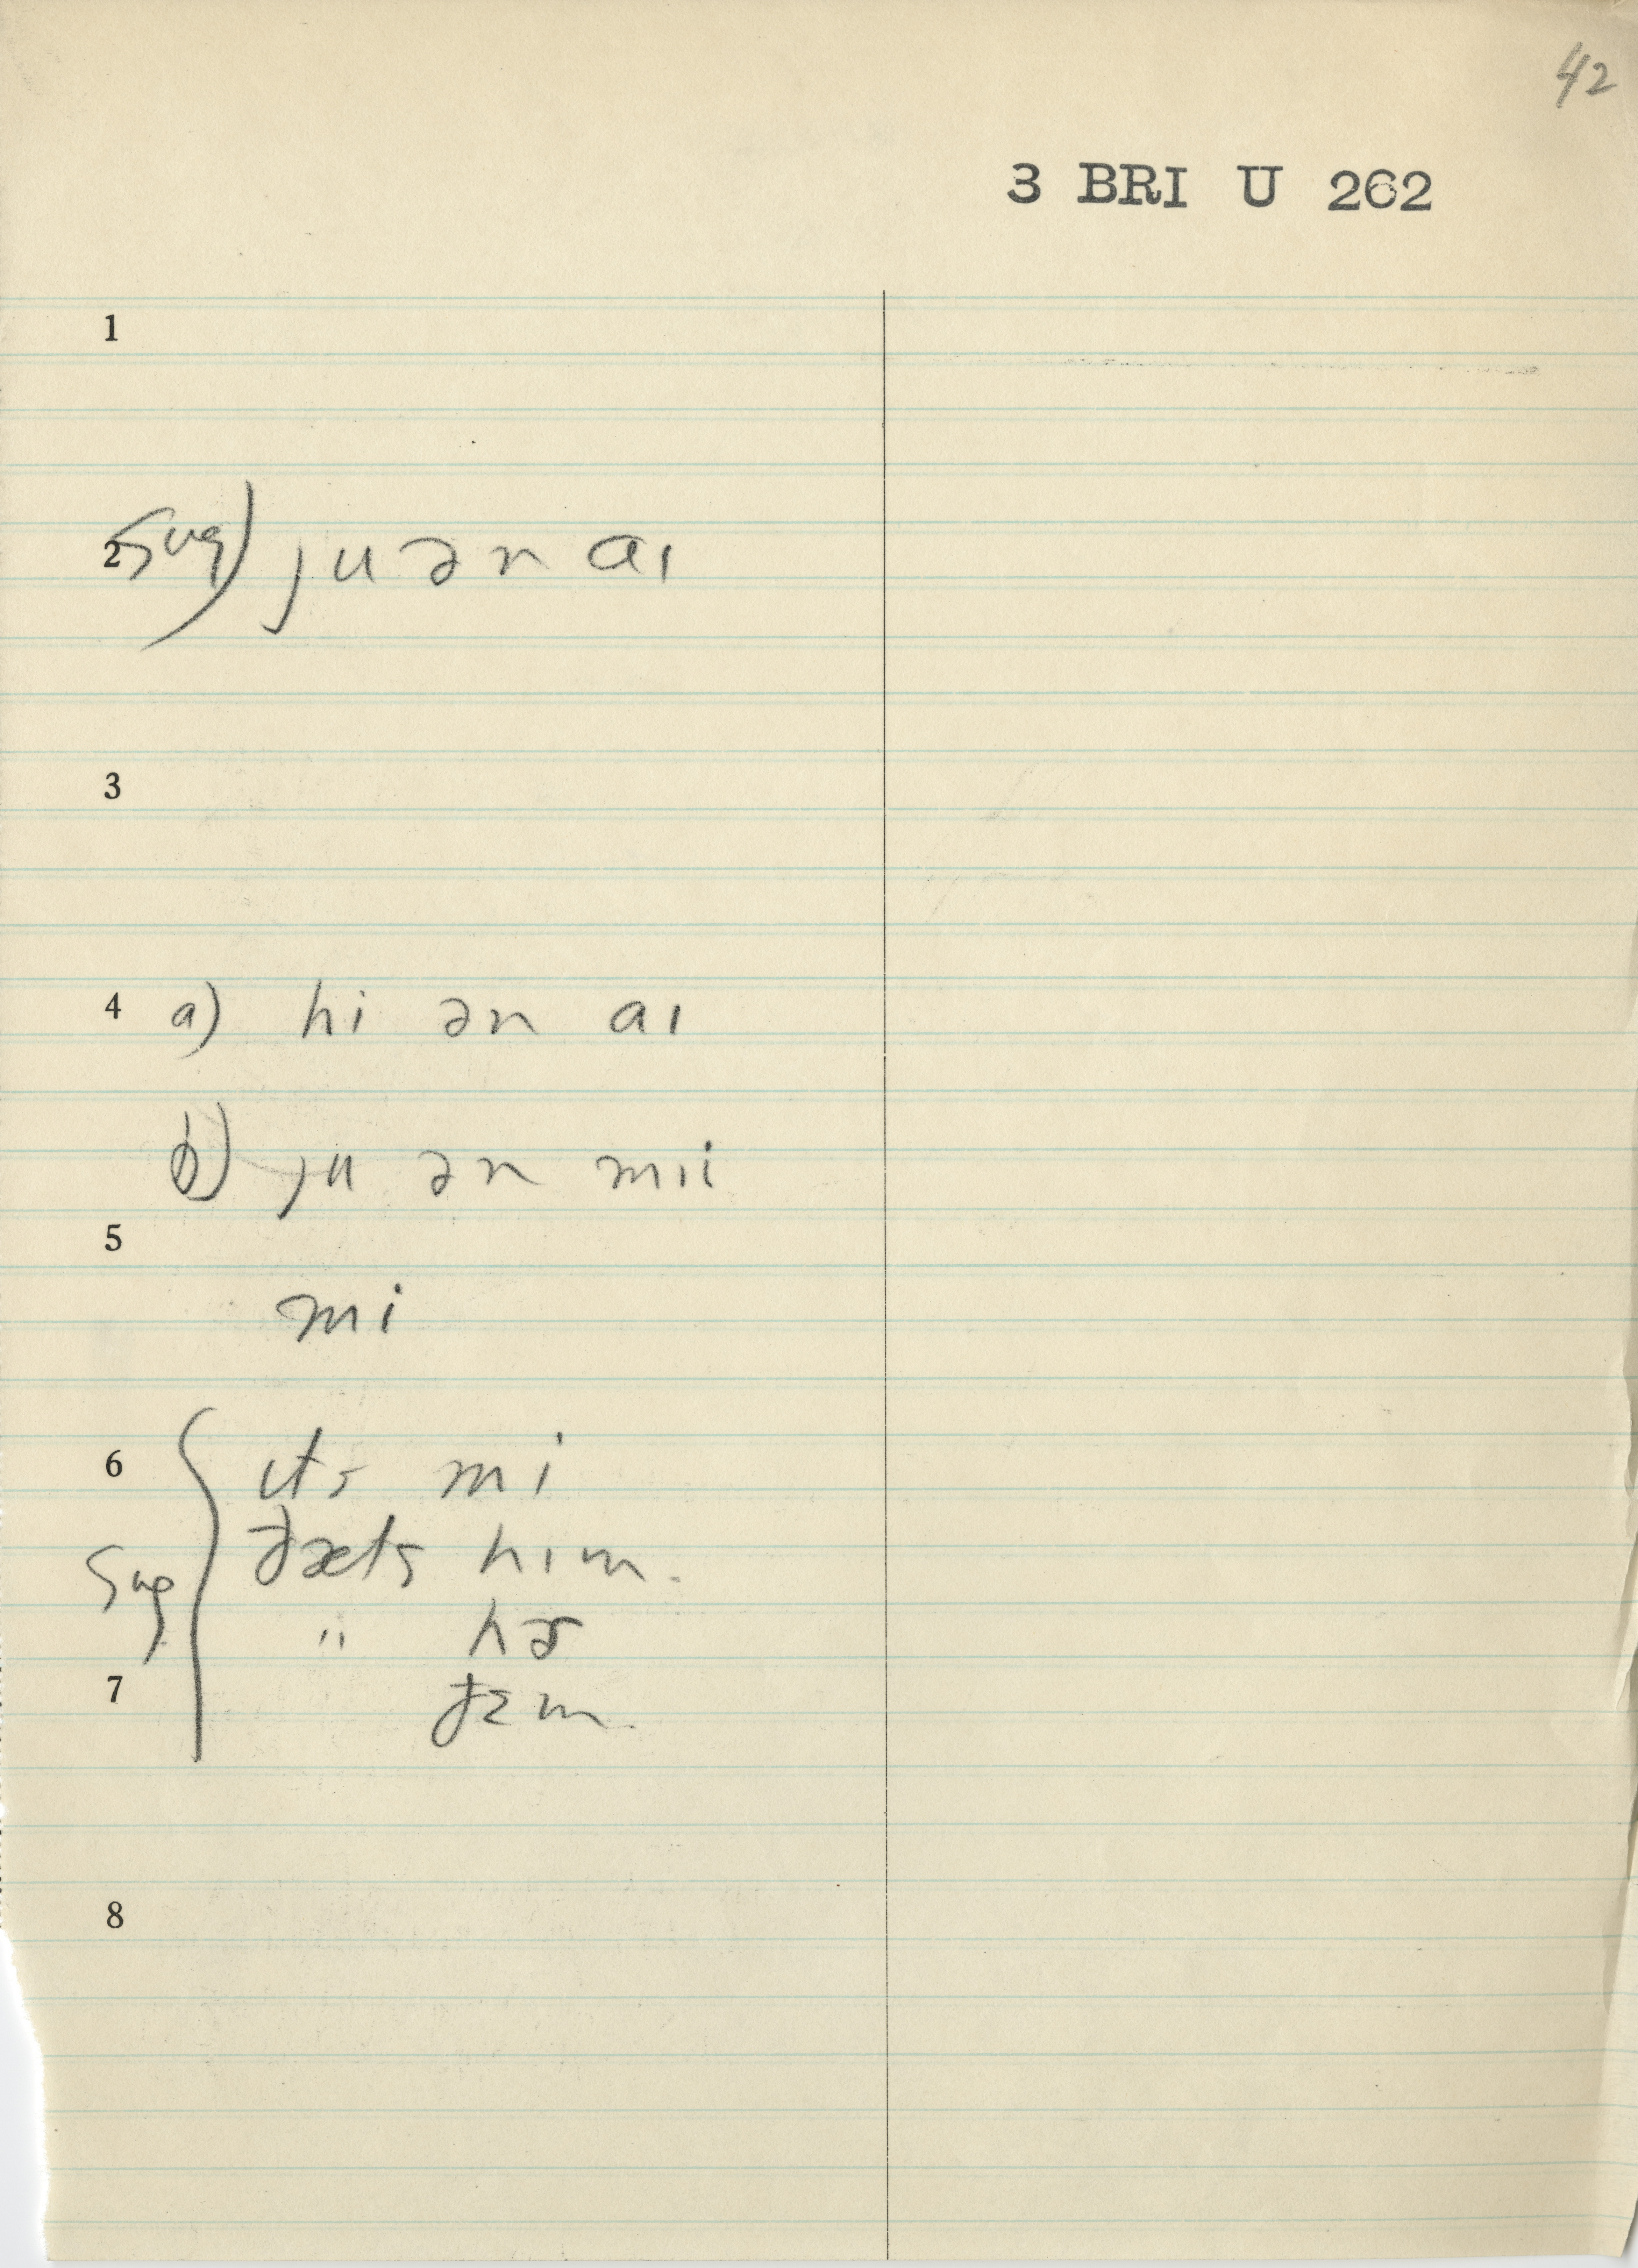 42
3 BRI U 262
1
2 Sug) ju ən aɪ
3
4 a) hi ən aɪ
b) ju ən mɪi
5
mi
6 ɪts mi
ðæts hɪm.
Sug
" hɚ
7 ðɛm.
8